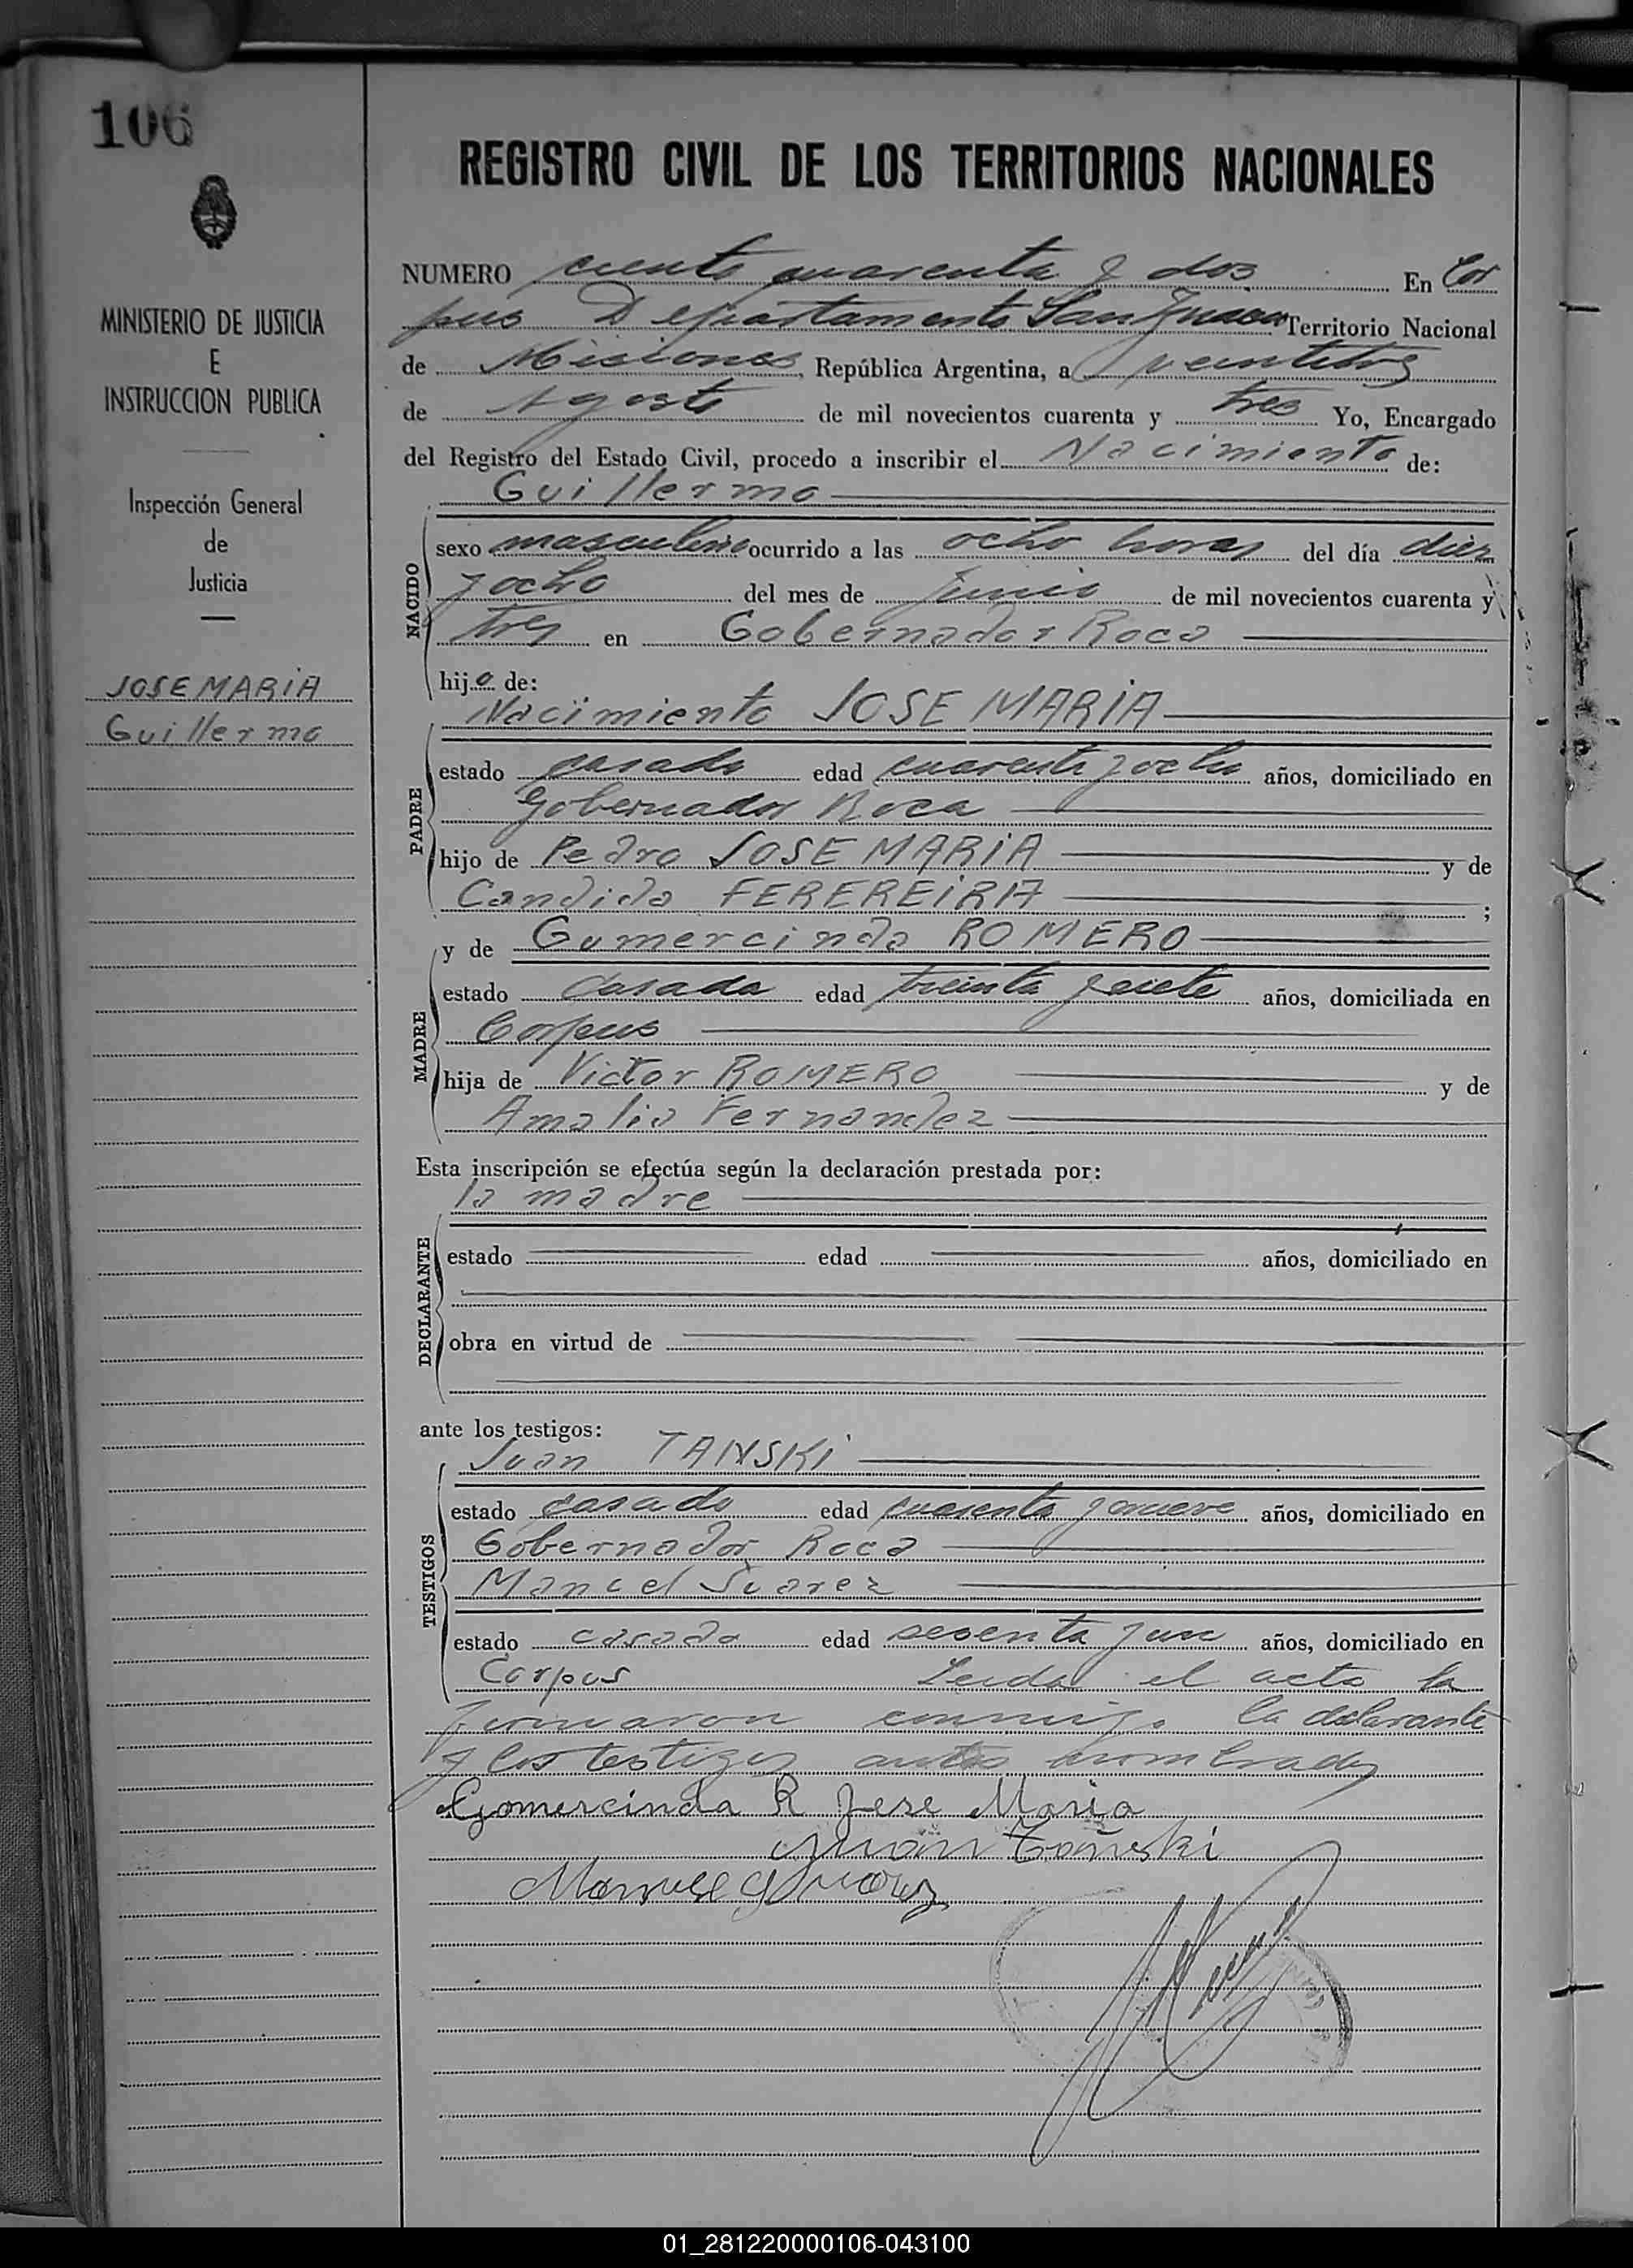 106
REGISTRO CIVIL DE LOS TERRITORIOS NACIONALES
MINISTERIO DE JUSTICIA
E
INSTRUCCION PUBLICA
Inspección General
de
Justicia
JOSE MARIA
Guillermo
NUMERO ciento cuarenta y dos En Cor
pus Departamento San Ignacio Territorio Nacional
de Misiones, República Argentina, a veintitres
de Agosto de mil novecientos cuarenta y tres Yo, Encargado
del Registro del Estado Civil, procedo a inscribir el Nacimiento de:
Guillermo
NACIDO
sexo masculino ocurrido a las ocho horas del día diez
y ocho del mes de junio de mil novecientos cuarenta y
tres en Gobernador Roca
hijo de:
Nacimiento JOSE MARIA
PADRE
estado casado edad cuarenta y ocho años, domiciliado en
Gobernador Roca
hijo de Pedro JOSE MARIA y de
Candida FEREREIRA ;
y de Gumercinda ROMERO
MADRE
estado casada edad treinta y siete años, domiciliada en
Corpus
hija de Victor ROMERO y de
Amalia Fernandez
Esta inscripción se efectúa según la declaración prestada por:
la madre
DECLARANTE
estado edad años, domiciliado en
obra en virtud de
ante los testigos:
Juan TANSKI
TESTIGOS
estado casado edad cuarenta y nueve años, domiciliado en
Gobernador Roca
Manuel Suarez
estado casado edad sesenta y un años, domiciliado en
Corpus Leida el acta la
firmaron conmigo la declarante
y los testigos antes nombrados
Gomercinda R Jese Maria
Juan Tañski
Manuel Suarez
01_281220000106-043100